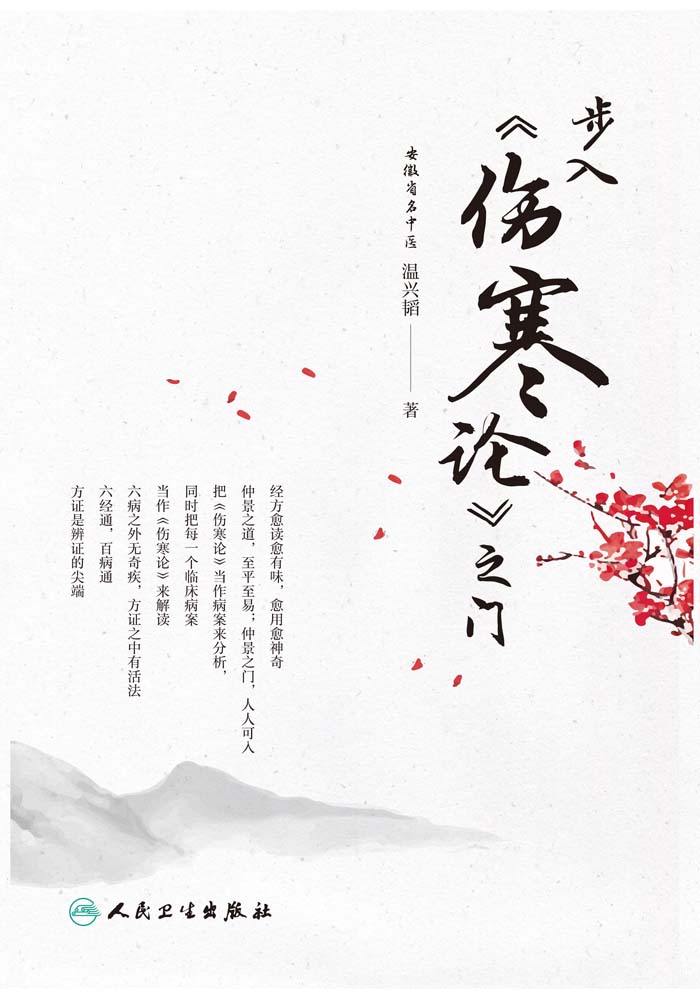 步入
《伤寒论》之门
安徽省名中医 温兴韬——著
经方愈读愈有味，愈用愈神奇
仲景之道，至平至易；仲景之门，人人可入
把《伤寒论》当作病案来分析，
同时把每一个临床病案
当作《伤寒论》来解读
六病之外无奇疾，方证之中有活法
六经通，百病通
方证是辨证的尖端
人民卫生出版社